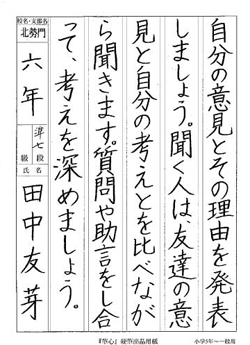 自分の意見とその理由を発表
しましょう。聞く人は、友達の意
見と自分の考えとを比べなが
ら聞きます。質問や助言をし合
って、考えを深めましょう。
校名・支部名
北勢門
六年
準七
級 段
氏名
田中友芽
『華心』硬筆出品用紙
小学5年〜一般用